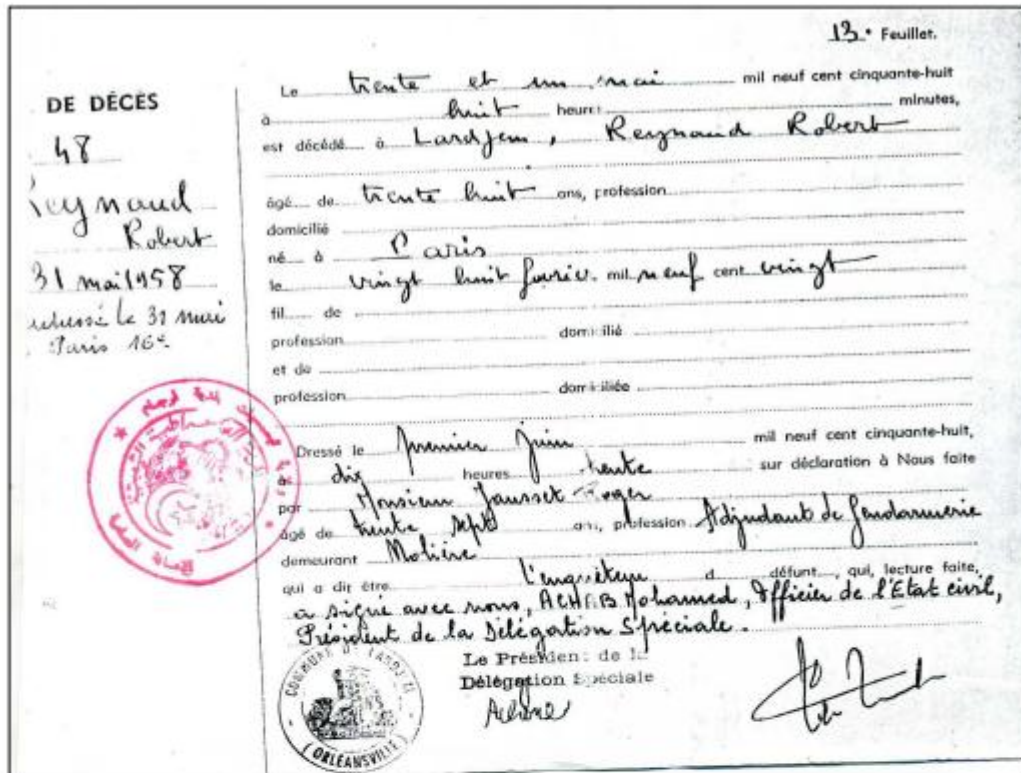 13e Feuillet.
DE DÉCÈS
48
Reynaud
Robert
31 mai 1958
le 31 mai
Paris 16e
Le trente et un mai mil neuf cent cinquante-huit
à huit heures minutes,
est décédé à Lardjem, Reynaud Robert
âgé de trente huit ans, profession
domicilié
né à Paris
le vingt huit février mil neuf cent vingt
fil de
profession domicilié
et de
profession domiciliée
Dressé le premier juin mil neuf cent cinquante-huit,
à dix heures trente sur déclaration à Nous faite
par Monsieur Jausset Roger
âgé de trente sept ans, profession Adjudant de Gendarmerie
demeurant Molière
qui a dit être l'enquêteur d défunt, qui, lecture faite,
a signé avec nous, ACHAB Mohamed, Officier de l'Etat civil,
Président de la Délégation Spéciale.
Le Président de la
Délégation Spéciale
COMMUNE DE LARDJEM
(ORLEANSVILLE)